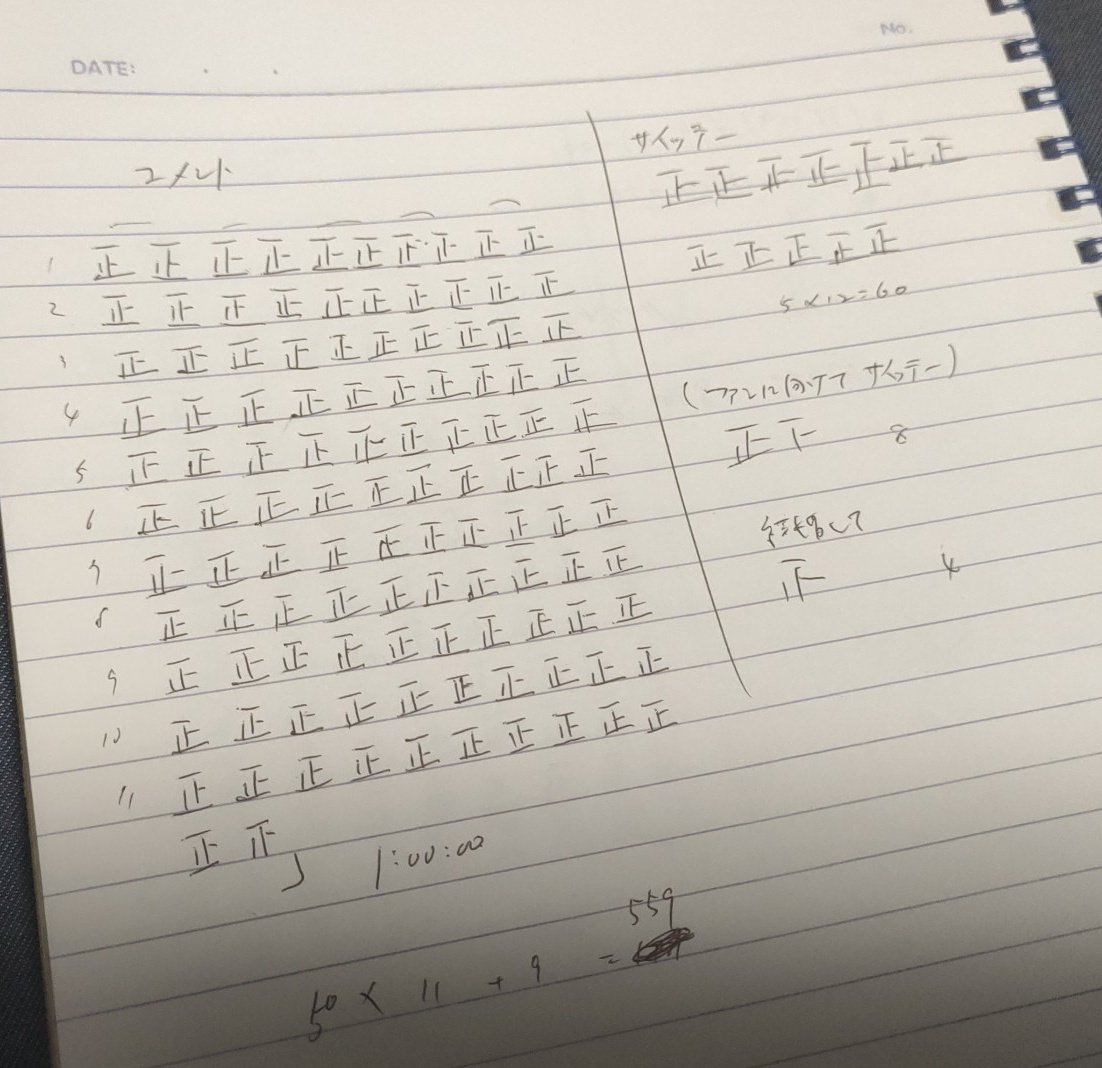 DATE:
No.
コメント
1 正 正 正 正 正 正 正 正 正 正
2 正 正 正 正 正 正 正 正 正 正
3 正 正 正 正 正 正 正 正 正 正
4 正 正 正 正 正 正 正 正 正 正
5 正 正 正 正 正 正 正 正 正 正
6 正 正 正 正 正 正 正 正 正 正
7 正 正 正 正 正 正 正 正 正 正
8 正 正 正 正 正 正 正 正 正 正
9 正 正 正 正 正 正 正 正 正 正
10 正 正 正 正 正 正 正 正 正 正
11 正 正 正 正 正 正 正 正 正 正
正 正
1:00:00
50 × 11 + 9 = 559
サイッテー
正 正 正 正 正 正 正
正 正 正 正 正
5×12=60
(ファンに向けて サイッテー)
正 下 8
結婚して
正 4